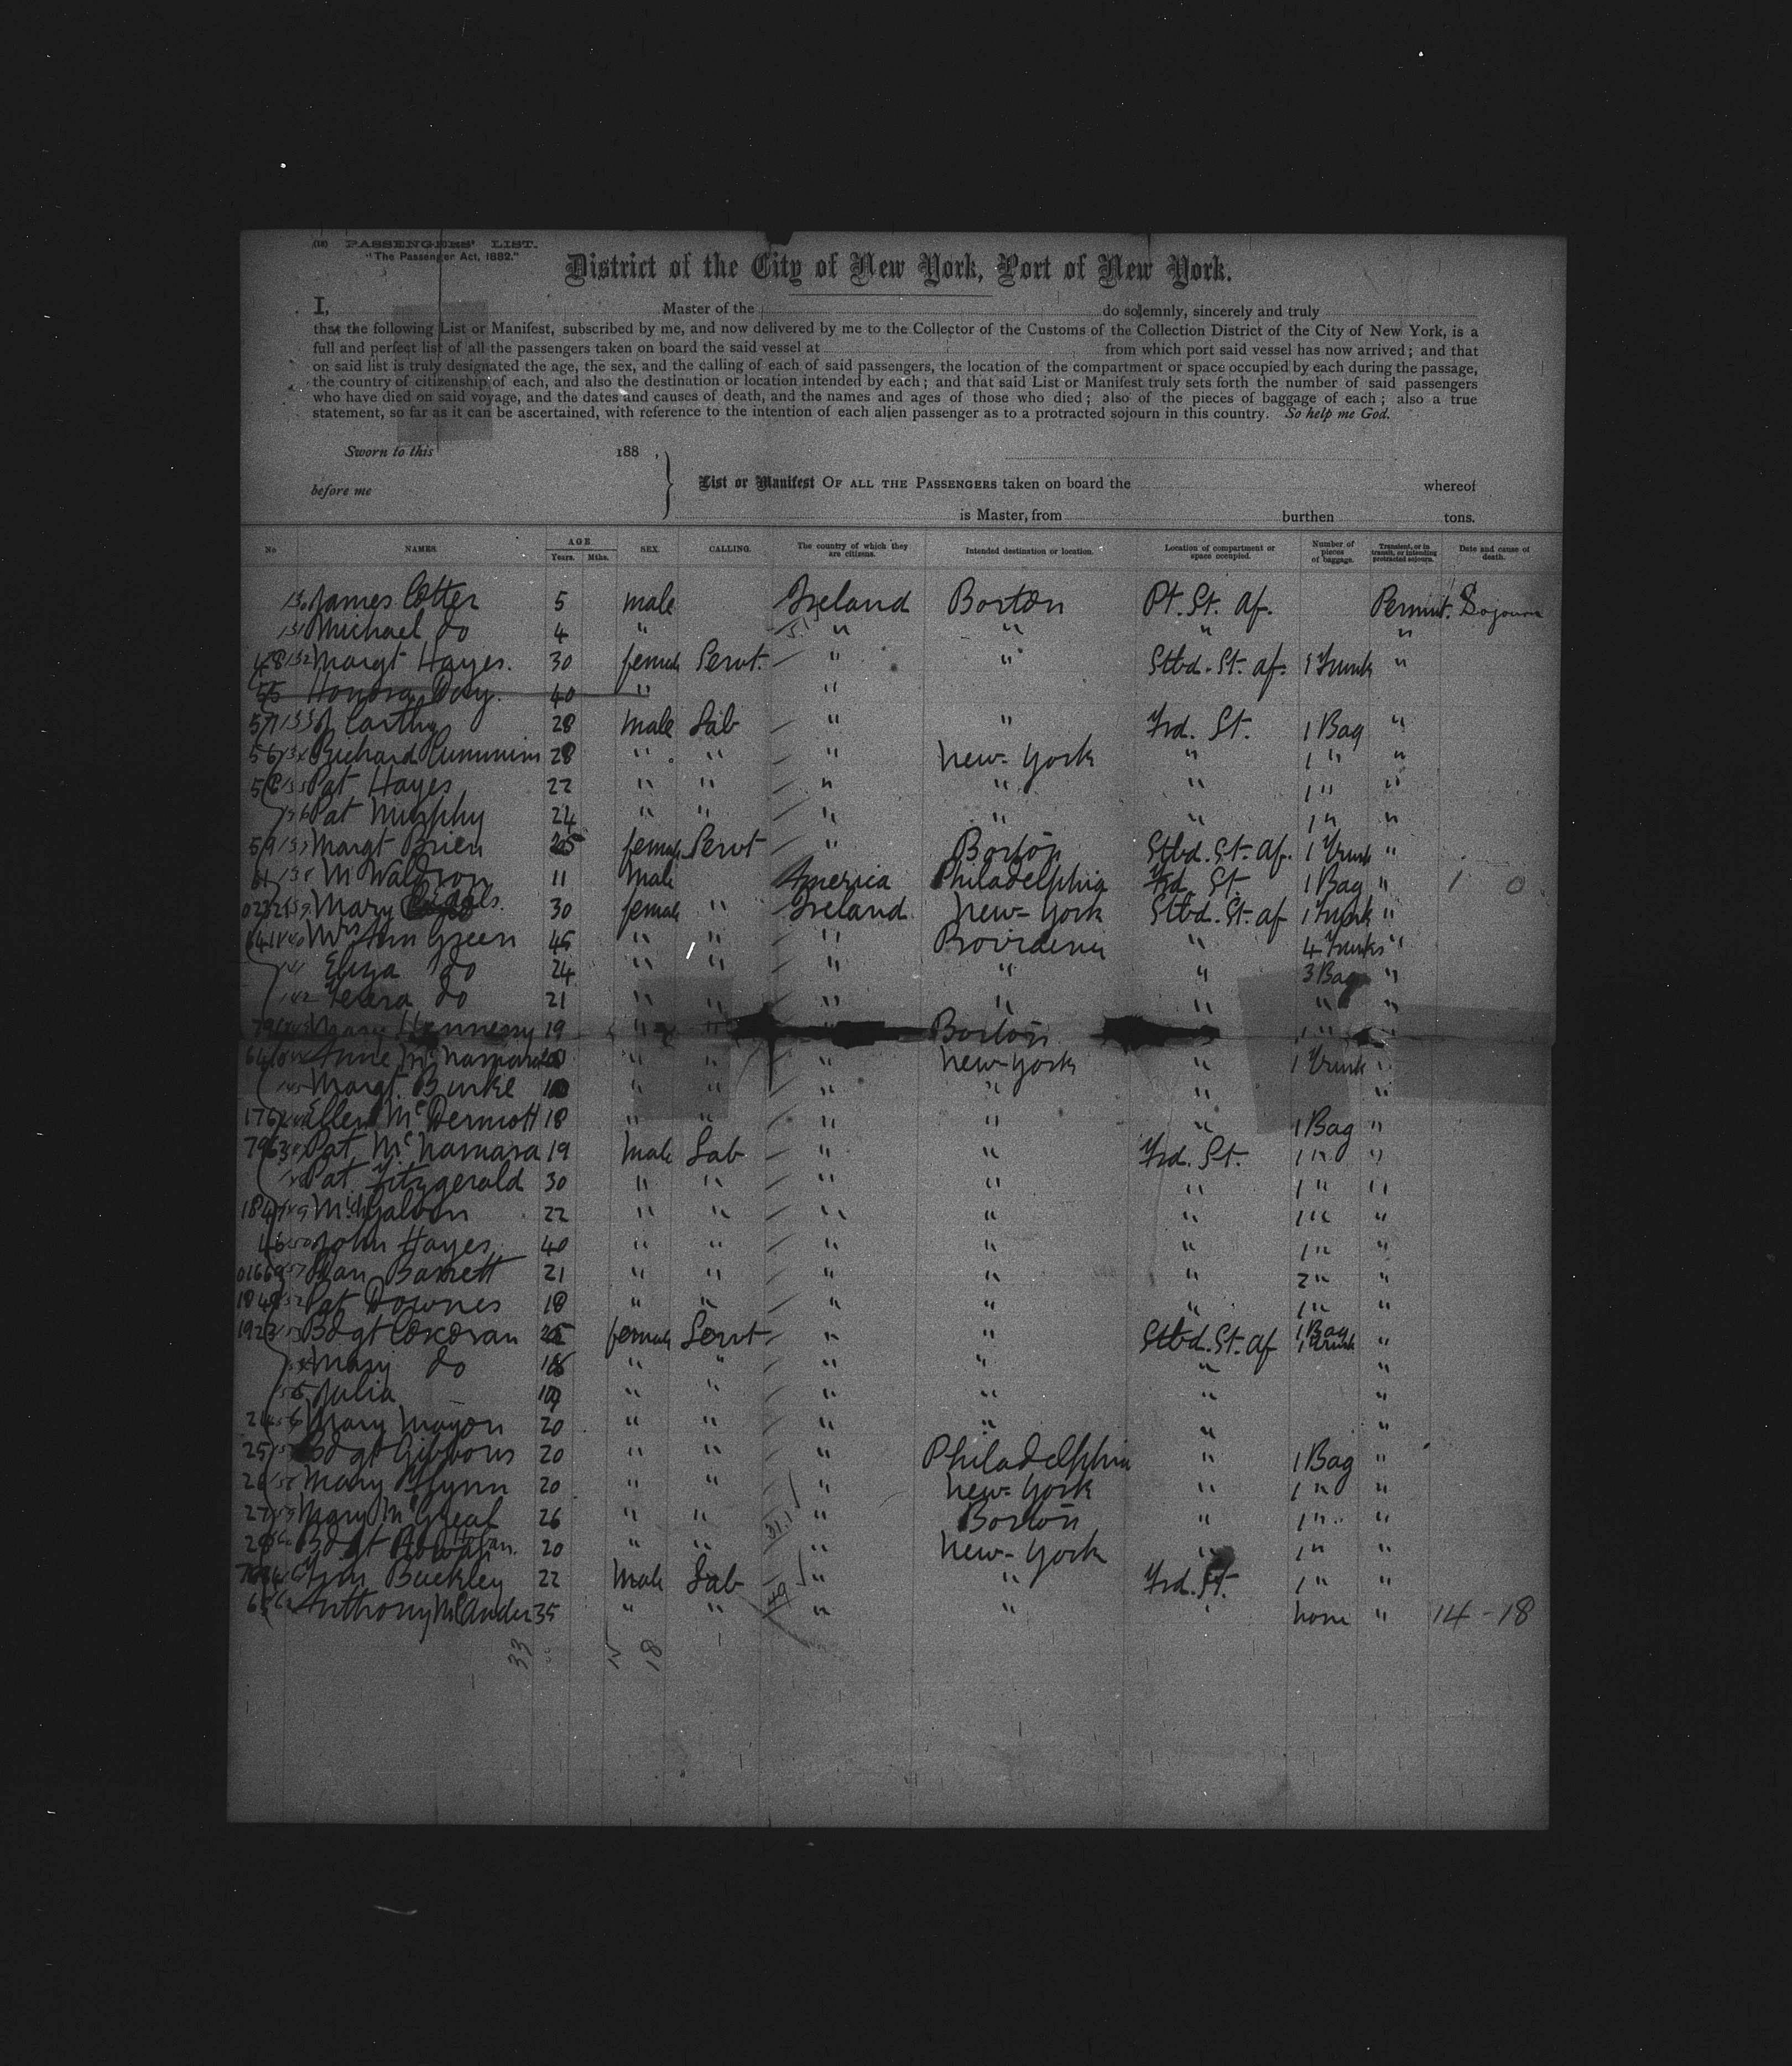 (18) PASSENGERS' LIST.
"The Passenger Act, 1882."
District of the City of New York, Port of New York.
I, Master of the do solemnly, sincerely and truly
that the following List or Manifest, subscribed by me, and now delivered by me to the Collector of the Customs of the Collection District of the City of New York, is a
full and perfect list of all the passengers taken on board the said vessel at from which port said vessel has now arrived; and that
on said list is truly designated the age, the sex, and the calling of each of said passengers, the location of the compartment or space occupied by each during the passage,
the country of citizenship of each, and also the destination or location intended by each; and that said List or Manifest truly sets forth the number of said passengers
who have died on said voyage, and the dates and causes of death, and the names and ages of those who died; also of the pieces of baggage of each; also a true
statement, so far as it can be ascertained, with reference to the intention of each alien passenger as to a protracted sojourn in this country. So help me God.
Sworn to this 188 ,
before me
List or Manifest OF ALL THE PASSENGERS taken on board the whereof
is Master, from burthen tons.
No NAMES. AGE Years. Mths. SEX. CALLING. The country of which they are citizens. Intended destination or location. Location of compartment or space occupied. Number of pieces of baggage. Transient, or in transit, or intending protracted sojourn. Date and cause of death.
130 James Cotter 5 male Ireland Boston Pt. St. Af. Permnt. Sojourn
131 Michael do 4 " " " " "
132 Margt Hayes. 30 female Servt. " " Stbd. St. af. 1 Trunk "
55 Honora Day. 40 " "
57 133 J Carthy 28 male Lab " " Frd. St. 1 Bag "
56 134 Richard Cummins 28 " " " New-York " 1 " "
58 135 Pat Hayes 22 " " " " " 1 " "
136 Pat Murphy 24 " " " " " 1 " "
59 137 Margt Brien 25 female Servt " Boston Stbd. St. af. 1 Trunk "
61 138 M Waldron 11 male America Philadelphia Frd. St. 1 Bag " 1 0
139 Mary 30 female " Ireland New-York Stbd. St. af 1 Trunk "
140 Mrs Ann Green 45 " " " Providence " 4 Trunks "
141 Eliza do 24 " " " " " 3 Bag "
142 do 21 " " " " " " "
143 Mary Hennessy 19 " " " Boston 1 " "
144 Anne McNamara " " " New-York " 1 Trunk "
145 Margt. Burke " " " " " "
176 146 Ellen McDermott 18 " " " " " 1 Bag "
147 Pat McNamara 19 Male Lab " " Frd. St. 1 " "
148 Pat. Fitzgerald 30 " " " " " 1 " "
184 149 Mich Galvin 22 " " " " " 1 " "
46 150 John Hayes 40 " " " " " 1 " "
Dan Barrett 21 " " " " " 2 " "
184 152 Pat Downes 18 " " " " " 1 " "
1923 153 Bdgt Corcoran 25 female Servt " " Stbd. St. af 1 Bag 1 Trunk "
154 Mary do " " " " " "
155 Julia " " " " " "
24 156 Mary Mayon 20 " " " " " "
25 157 Bdgt Gibbons 20 " " " Philadelphia " 1 Bag "
26 158 Mary Flynn 20 " " " New-York " 1 " "
27 159 Mary McGreal 26 " " " Boston " 1 " "
28 160 Bdgt 20 " " " New-York " 1 " "
Buckley 22 Male Lab " " Frd. St. 1 " "
Anthony McAnder 35 " " " " " none " 14 - 18
33 18